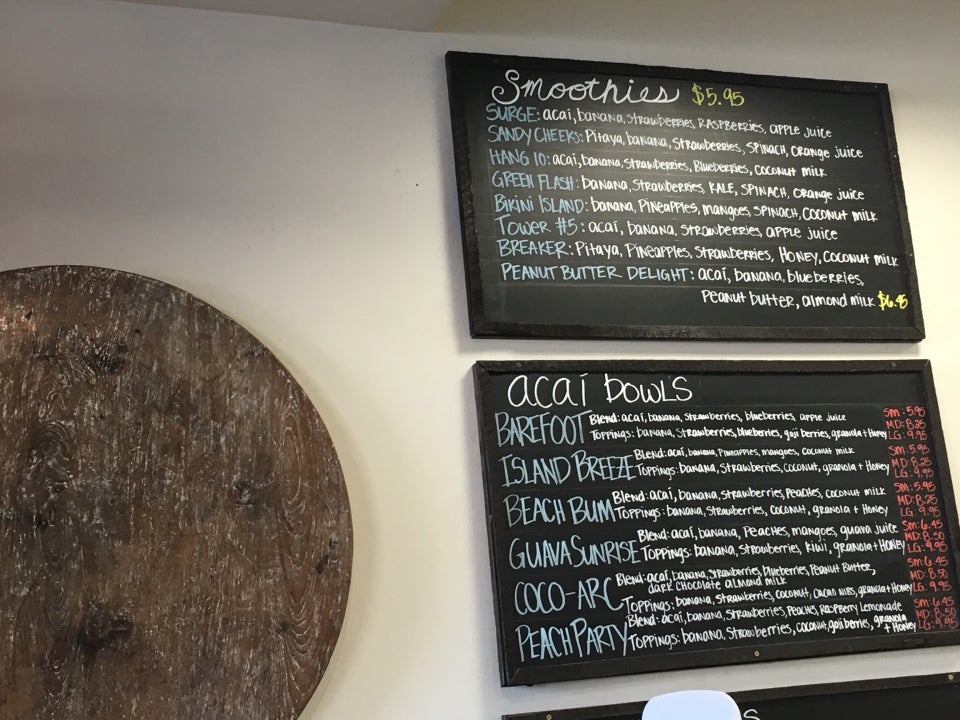 Smoothies $5.95
SURGE: acaí, banana, strawberries, RASPBERRIES, apple juice
SANDY CHEEKS: Pitaya, banana, strawberries, SPINACH, orange juice
HANG 10: acaí, banana, strawberries, Blueberries, coconut milk
GREEN FLASH: banana, strawberries, KALE, SPINACH, orange juice
BIKINI ISLAND: banana, PINEAPPLES, mangoes, SPINACH, COCONUT MILK
TOWER #5: acaí, banana, strawberries, apple juice
BREAKER: Pitaya, Pineapples, Strawberries, HONEY, coconut milk
PEANUT BUTTER DELIGHT: acaí, banana, blueberries,
Peanut butter, almond milk $6.45
acaí bowls
BAREFOOT Blend: acaí, banana, strawberries, blueberries, apple juice SM: 5.95
Toppings: banana, strawberries, blueberries, goji berries, granola + Honey MD: 8.25
LG: 9.95
ISLAND BREEZE Blend: acaí, banana, Pineapples, mangoes, coconut milk SM: 5.95
Toppings: banana, strawberries, coconut, granola + Honey MD: 8.25
LG: 9.95
BEACH BUM Blend: acaí, banana, strawberries, Peaches, coconut milk SM: 5.95
Toppings: banana, strawberries, coconut, granola + Honey MD: 8.25
LG: 9.95
GUAVA SUNRISE Blend: acaí, banana, Peaches, mangoes, guava juice SM: 6.45
Toppings: banana, strawberries, kiwi, granola + HONEY MD: 8.50
LG: 9.95
COCO-ARC Blend: acaí, banana, strawberries, blueberries, Peanut Butter, SM: 6.45
dark chocolate almond milk MD: 8.50
Toppings: banana, strawberries, coconut, cacao nibs, granola + Honey LG: 9.95
PEACH PARTY Blend: acaí, banana, strawberries, Peaches, Raspberry Lemonade SM: 6.45
Toppings: banana, strawberries, coconut, goji berries, granola MD: 8.50
+ Honey LG: 9.95